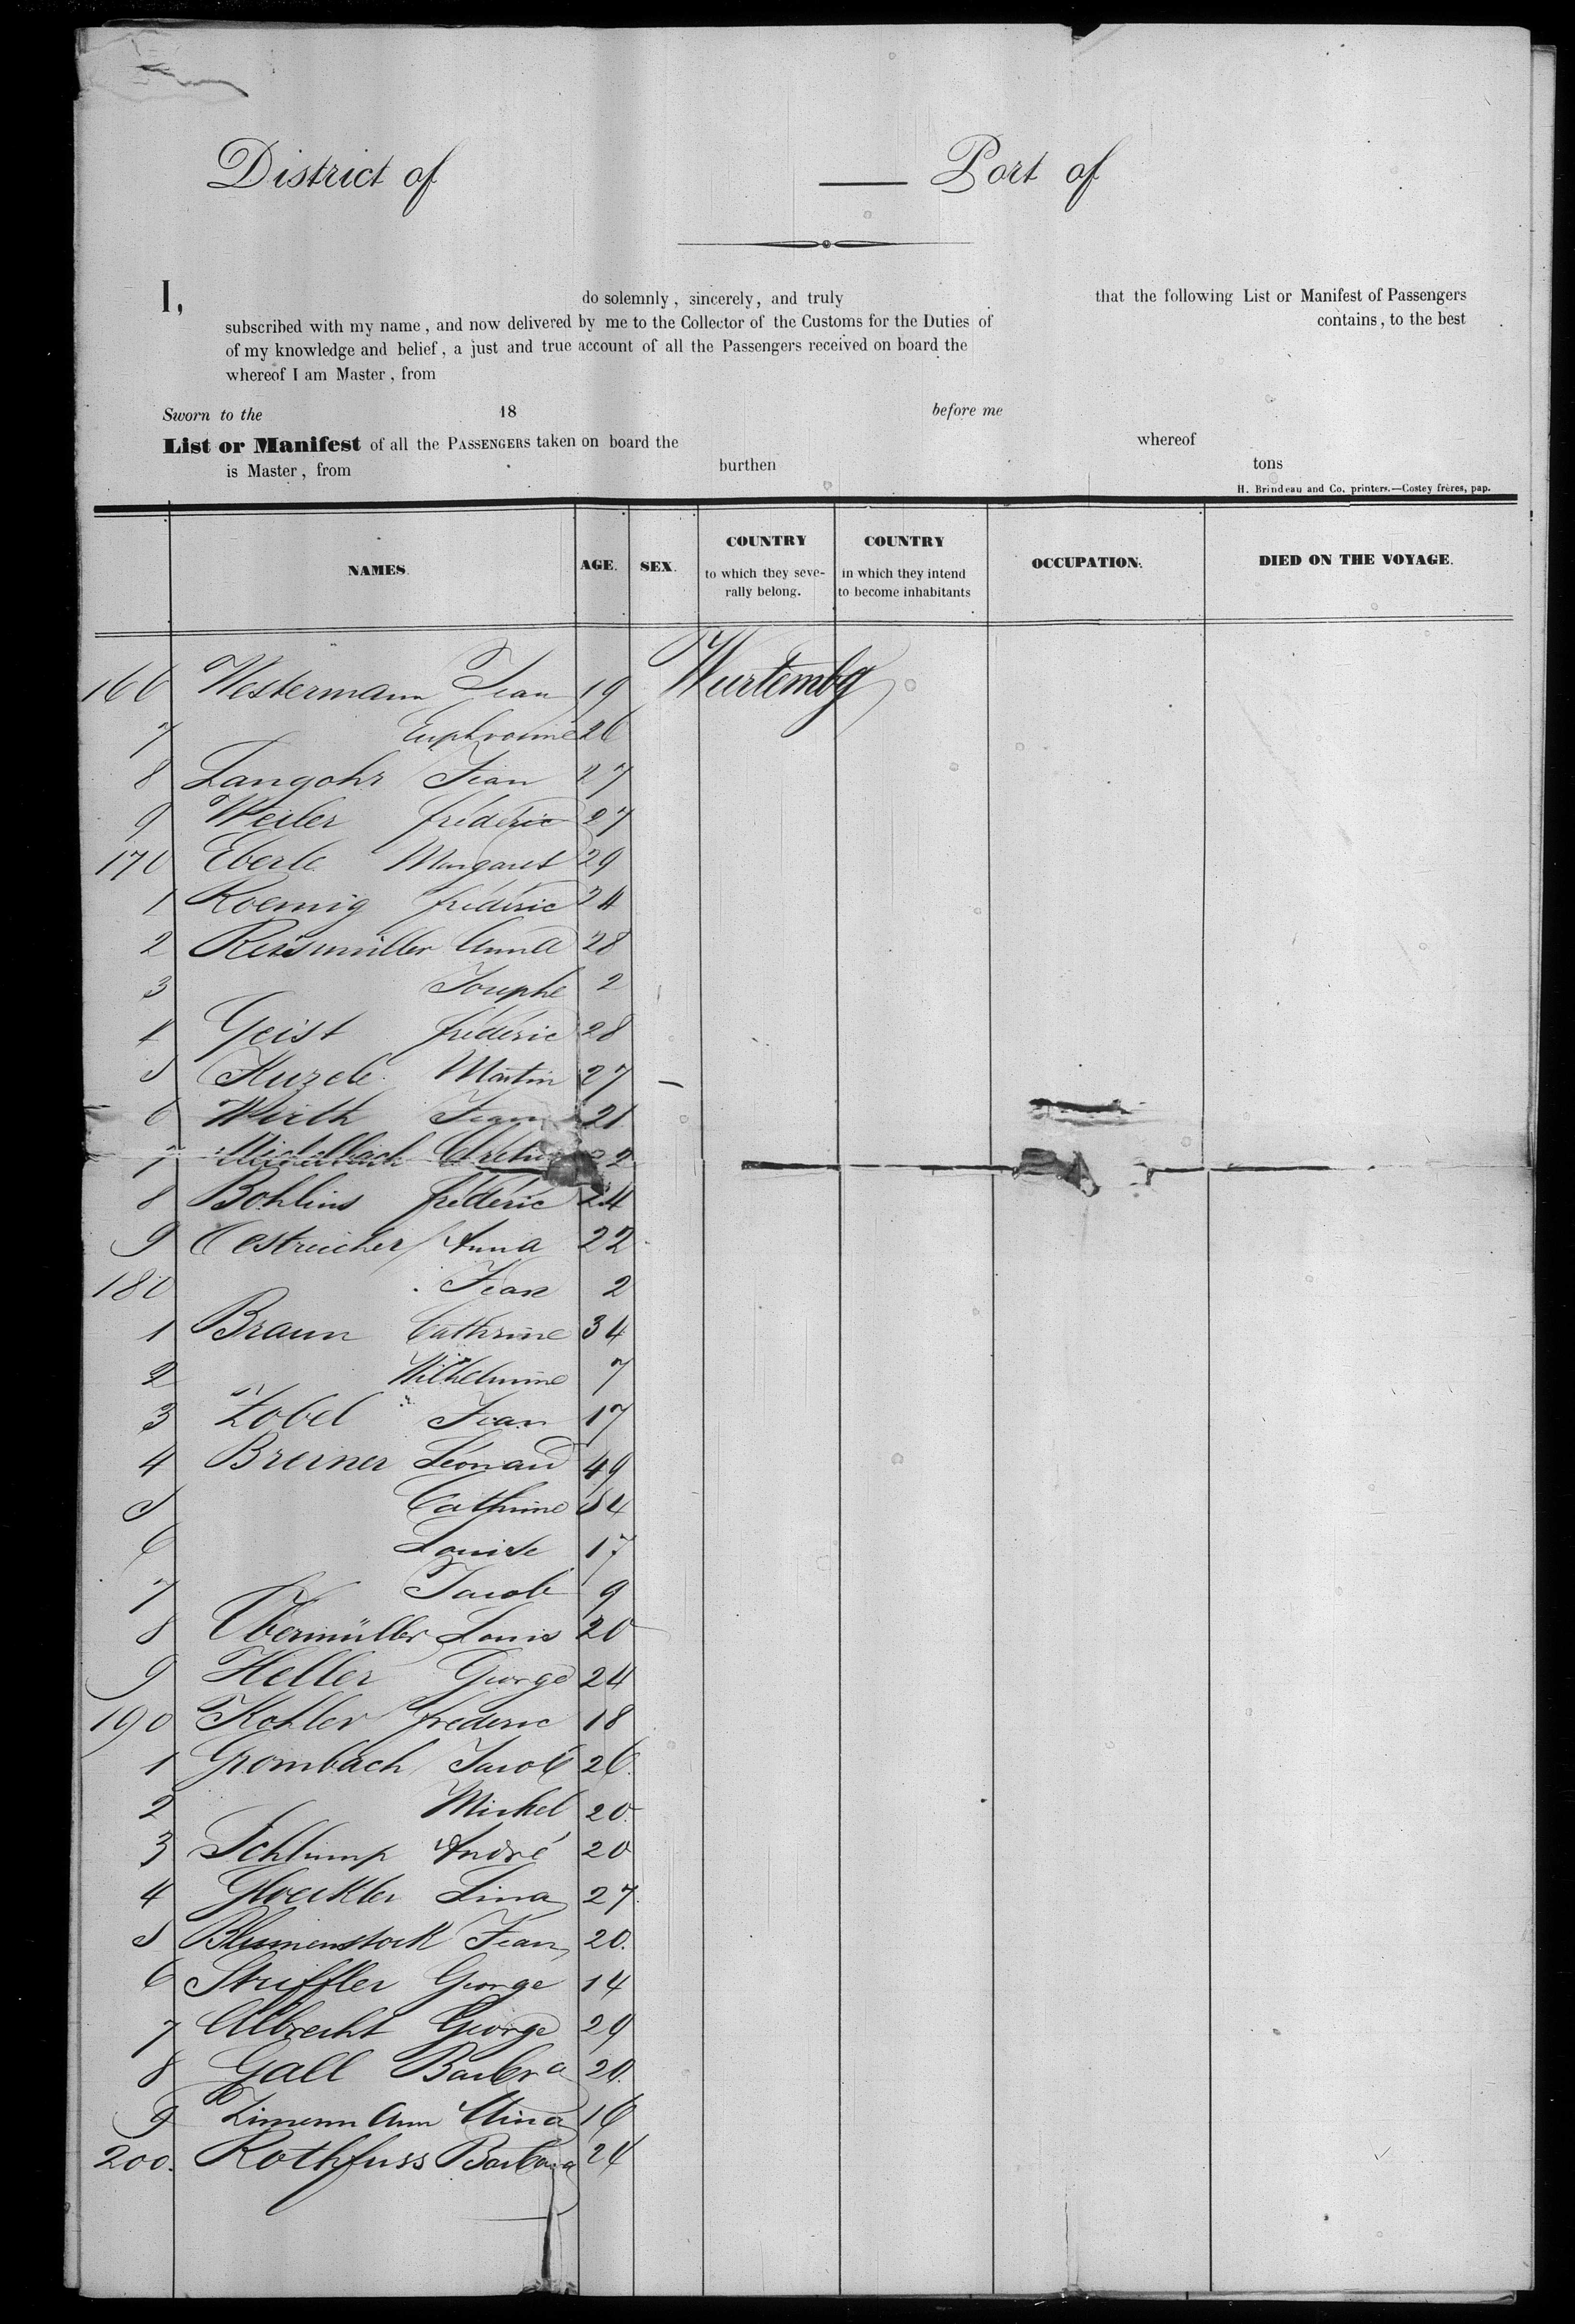 District of — Port of
I, do solemnly, sincerely, and truly that the following List or Manifest of Passengers
subscribed with my name, and now delivered by me to the Collector of the Customs for the Duties of contains, to the best
of my knowledge and belief, a just and true account of all the Passengers received on board the
whereof I am Master, from
Sworn to the 18 before me
List or Manifest of all the PASSENGERS taken on board the whereof
is Master, from burthen tons
H. Brindeau and Co. printers.—Costey frères, pap.
NAMES. AGE. SEX. COUNTRY to which they seve- rally belong. COUNTRY in which they intend to become inhabitants OCCUPATION. DIED ON THE VOYAGE.
166 Westermann Jean 19 Wurtembg
7 Euphrosine 26
8 Langohr Jean 27
9 Weiler frédéric 27
170 Eberle Margaret 29
1 Koenig frédéric 24
2 Reissmüller Anna 28
3 Josephe 2
4 Geist fréderic 28
5 Kuzele Martin 27
6 Wirth Jean 21
7 Michelbach
8 Bohlins fréderic 24
9 Oestreicher Anna 22
180 Jean 2
1 Braun Cathrine 34
2 Wilhelmine 7
3 Zobel Jean 17
4 Breiner Léonard 49
5 Cathrine 54
6 Louise 17
7 Jacob 9
8 Obermüller Louis 20
9 Heller George 24
190 Kohler frederic 18
1 Grombach Jacob 26.
2 Michel 20.
3 Schlump André 20
4 Gloeckler Lina 27.
5 Blumenstock Jean 20.
6 Striffler George 14
7 Albrecht George 29
8 Gall Barbra 20.
9 Zimermann 16
200. Rothfuss Barbara 24